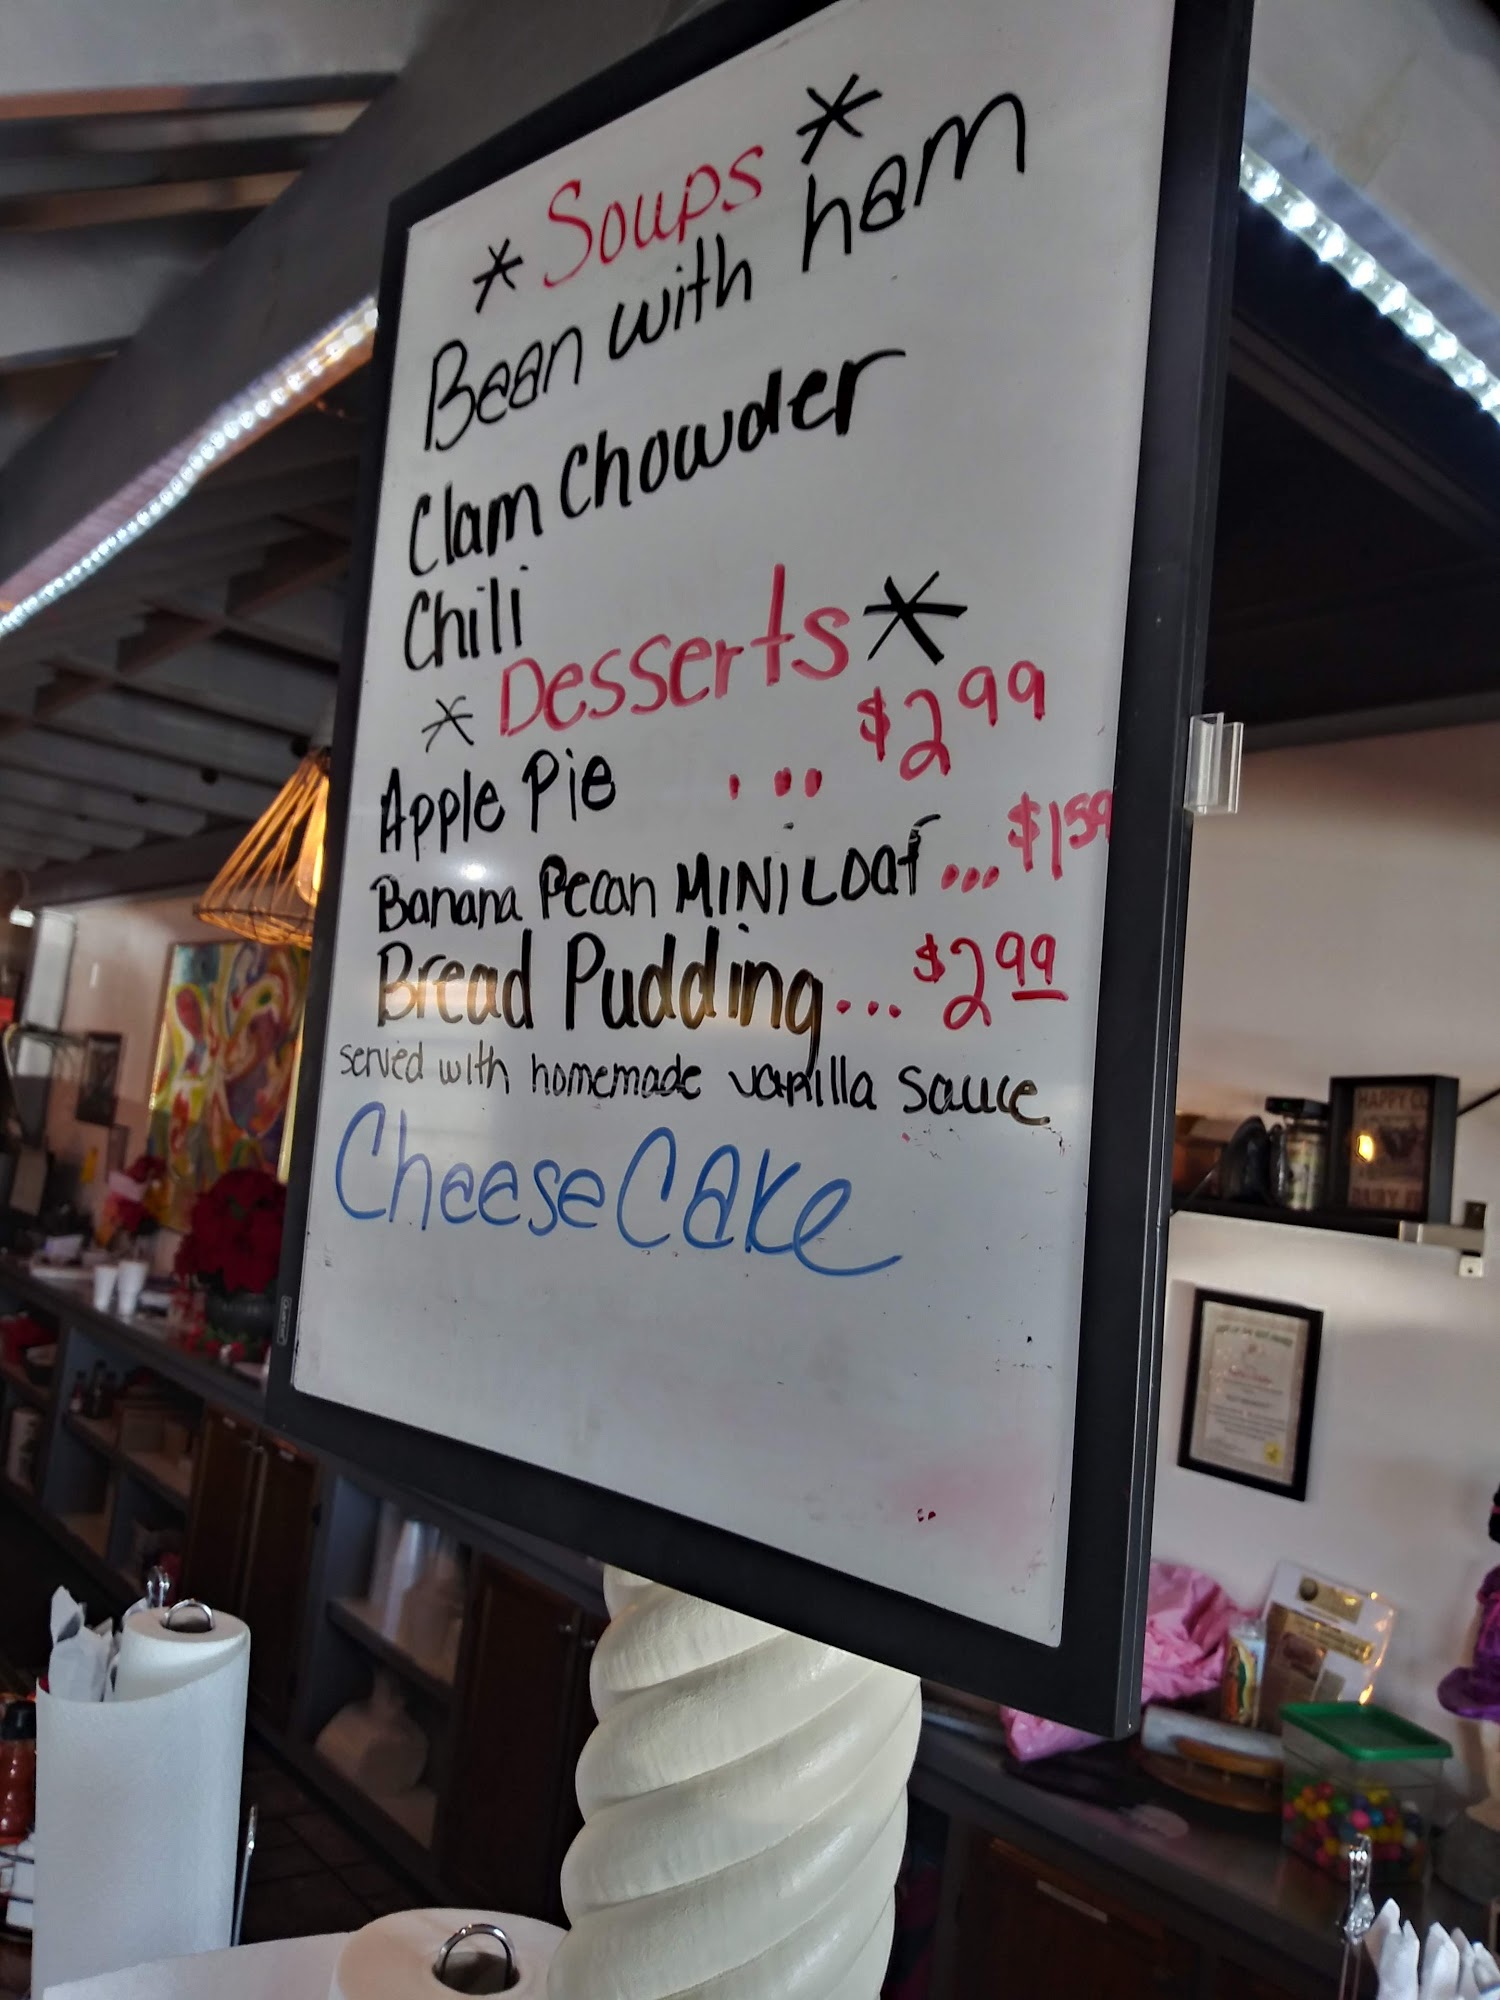 * Soups *
Bean with ham
Clam Chowder
Chili
* Desserts *
Apple Pie ... $2.99
Banana Pecan MINI LOaf ... $1.59
Bread Pudding ... $2.99
served with homemade vanilla sauce
Cheese Cake
HAPPY